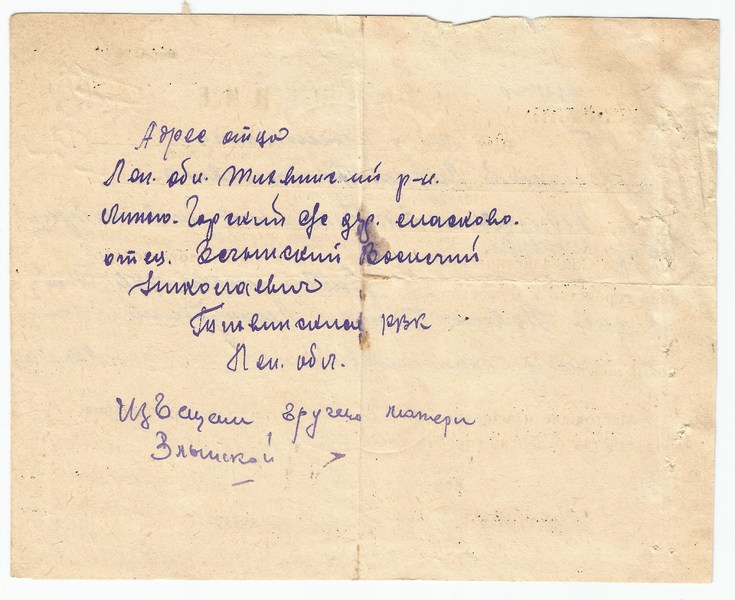 Адрес отца
Лен. обл. Тихвинский р-н.
Горский с/с дер. Спасково.
отец. Василий
Николаевич
Тихвинский РВК
Лен. обл.
Извещени вручено матери
Злынской